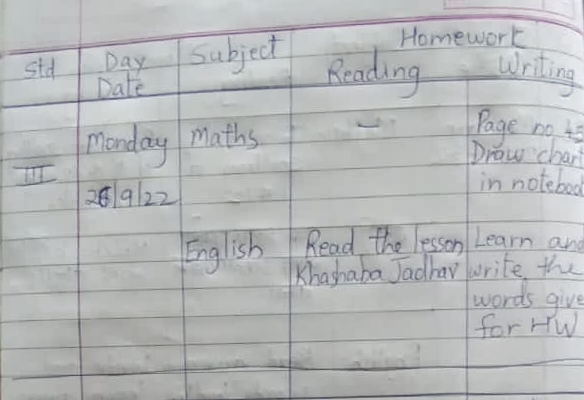 Homework
Std Day Subject Reading Writing
Date
Monday Maths - Page no
III Draw chart
26/9/22 in notebook
English Read the lesson Learn and
Khashaba Jadhav write the
words give
for HW